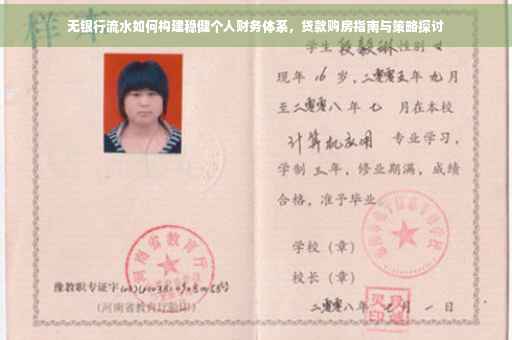 样本
无银行流水如何构建稳健个人财务体系，贷款购房指南与策略探讨
学生段毅琳性别女
现年16岁，二零零五年九月
至二零零八年七月在本校
计算机应用 专业学习，
学制三年，修业期满，成绩
合格，准予毕业。
学校（章）
河南省教育厅
校长（章）
豫教职专证字
（河南省教育厅验印）
二零零八年七月一日